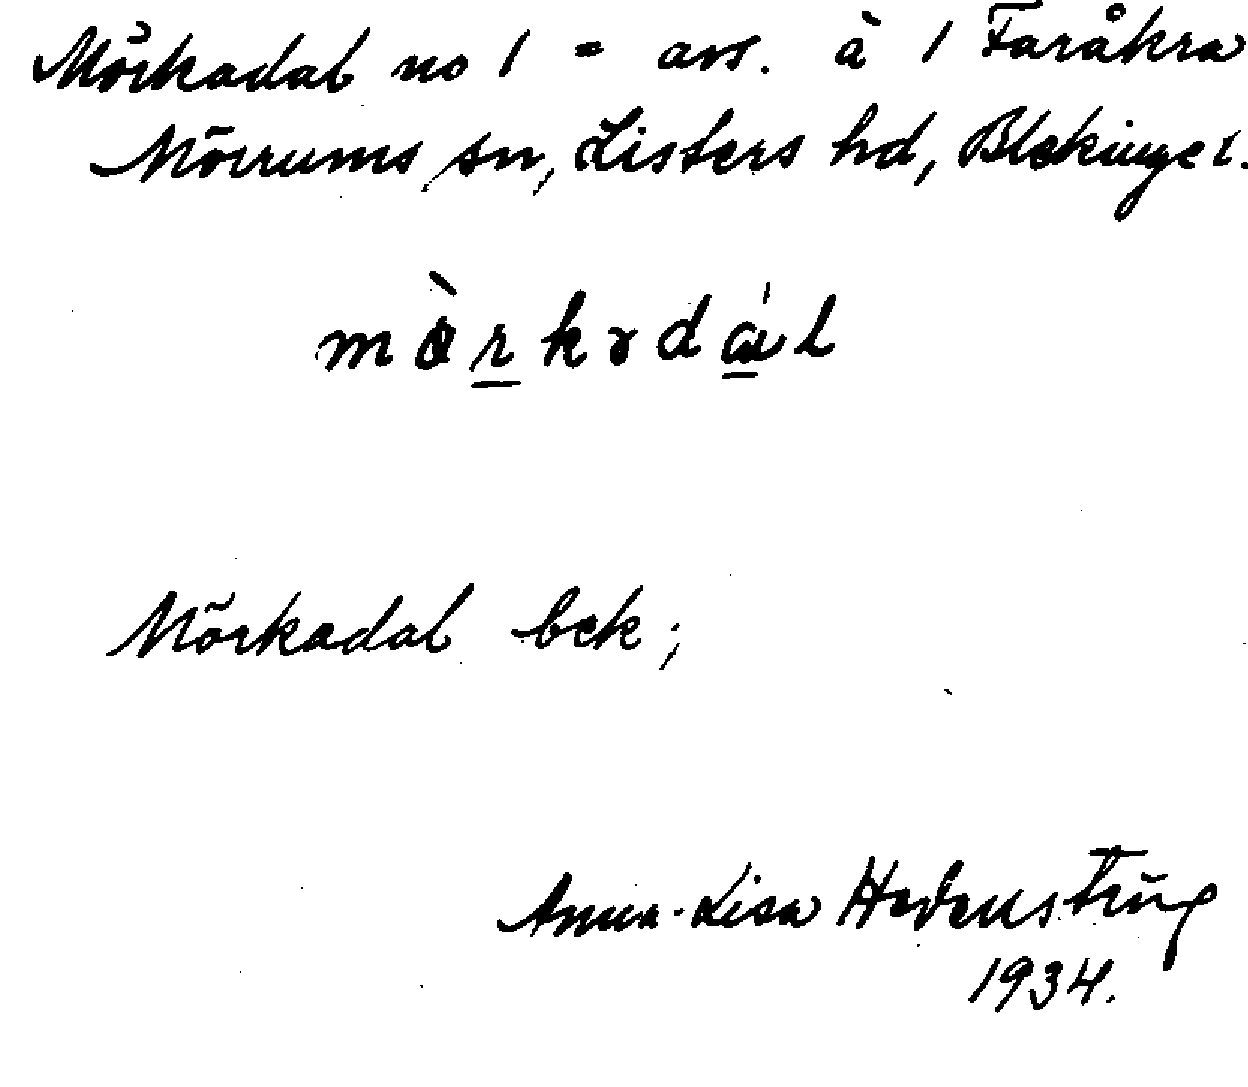 Mörkadal no 1 = avs. à 1 Faråkra
Mörrums sn, Listers hd, Blekinge l.
mörkədal
Mörkadal bek;
Anna-Lisa Hedenstrüg
1934.